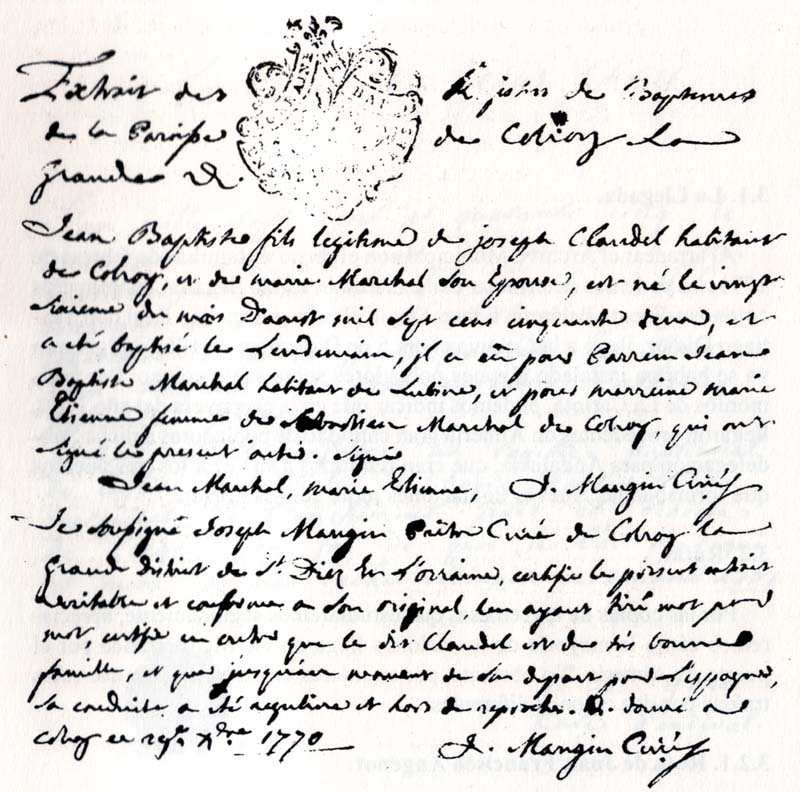 Extrait des Registres de Baptemes
de la Paroisse de Colroy La
Grande &.
Jean Baptiste fils legitime de joseph Claudel habitant
de Colroy, et de marie Marchal son Epouse, est né le vingt
du mois D'aoust mil sept cens cinquante deux, et
a eté baptisé le Lendemain, il a eu pour Parrein Jean
Baptiste Marchal habitant de Lubine, et pour marreine marie
Etienne femme de Sebastien Marchal de Colroy qui ont
signé le present acte. signé
Jean Marchal, marie Etienne, J. Mangin Curé
Je soussigné Joseph Mangin Prêtre Curé de Colroy la
Grande district de St Diez En Lorraine, certifie le présent extrait
veritable et conforme a son original l'en ayant tiré mot pour
mot, certifie en outre que le dit Claudel est de très bonne
famille, et que jusqu'au moment de son depart pour l'espagne,
sa conduite a été reguliere et hors de reproche. donné a
colroy ce 29e Xbre 1770
J. Mangin Curé
3.1. La Llegada.
3.2.1. de Juan Francisco Angenot.